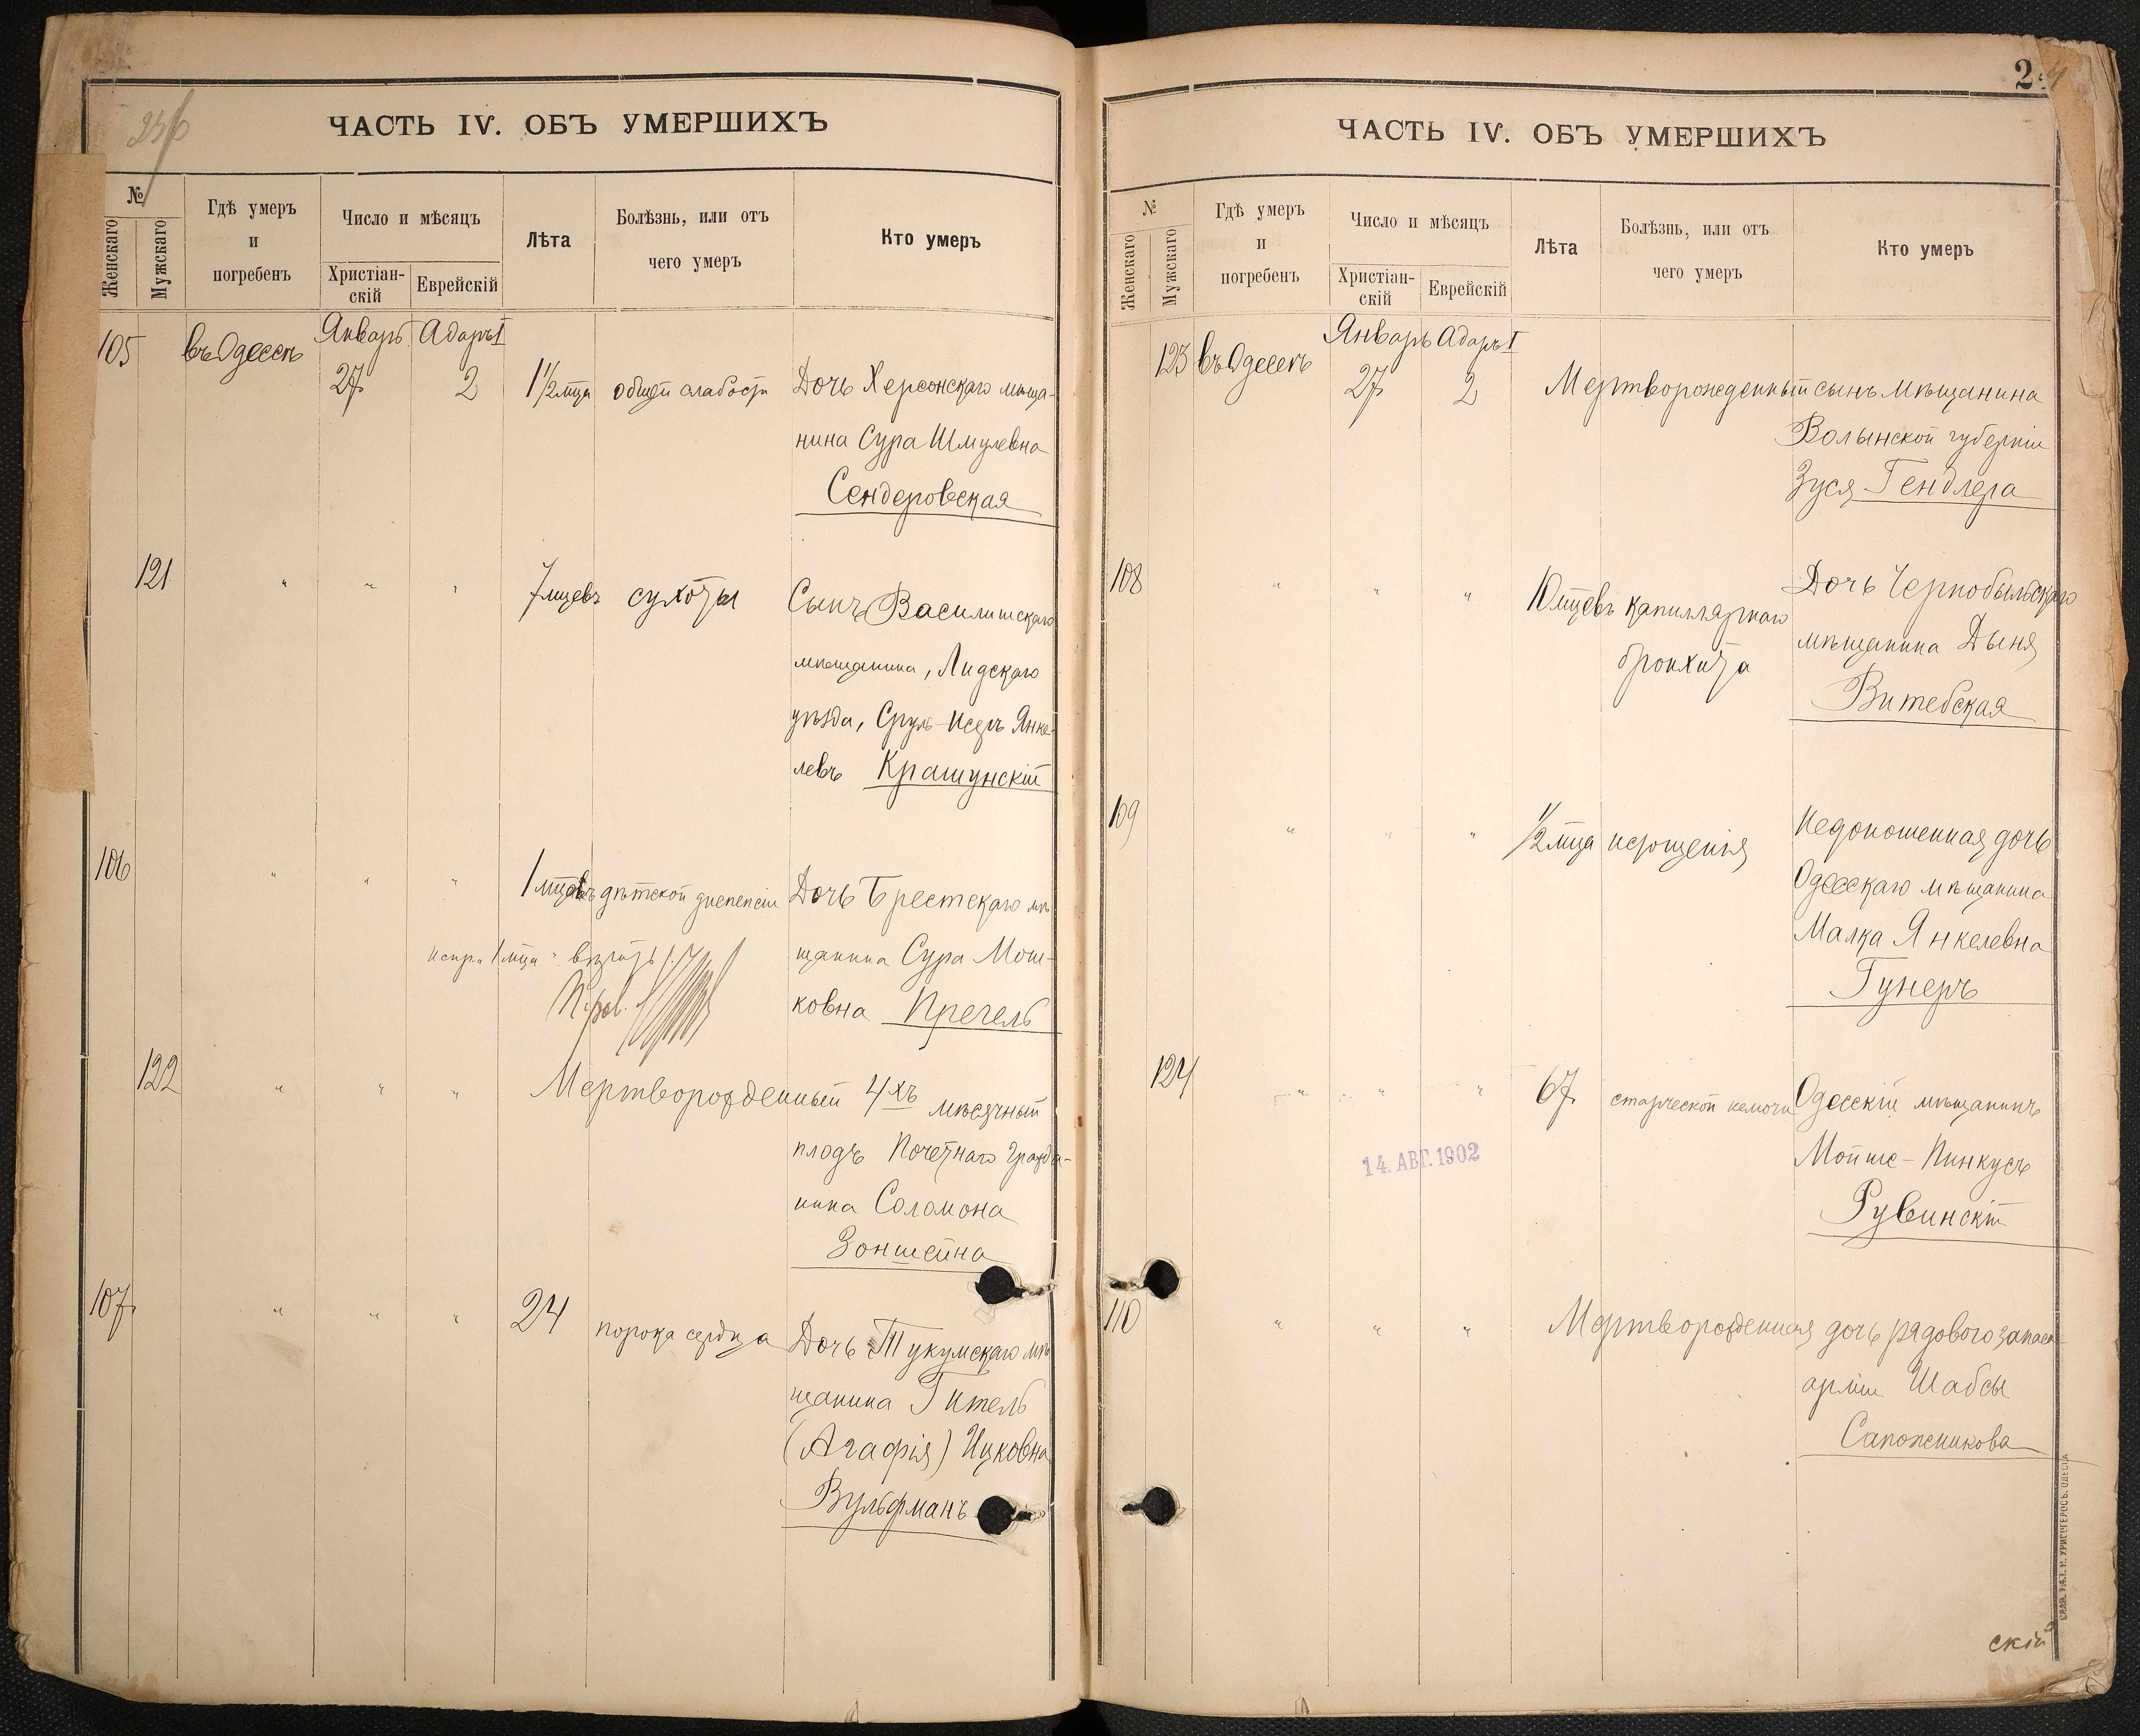 236
ЧАСТЬ IV. ОБЪ УМЕРШИХЪ
№
Женскаго
Мужскаго
Гдѣ умеръ
и
погребенъ
Число и мѣсяцъ
Христіан-
скій
Еврейскій
Лѣта
Болѣзнь, или отъ
чего умеръ
Кто умеръ
105 въ Одессѣ Январь Адаръ I
27 2 1 1/2 мца общей слабости Дочь Херсонскаго мѣща-
нина Сура Шмулевна
Сендеровская
121 " " " 7 мцевъ сухоты Сынъ Василишскаго
мѣщанина, Лидскаго
уѣзда, Сруль-Исеръ Янке-
левъ Крашунскій
106 " " " 1 мцовъ дѣтской диспепсіи Дочь Брестскаго мѣ
испр. "1 мца" вѣрить
щанина Сура Мош-
ковна Пречель
122 " " " Мертворожденный 4хъ мѣсячный
плодъ Почетнаго Гражда-
нина Соломона
Зонштейна
107 " " " 24 порока сердца Дочь Тукумскаго мѣ
щанина Гитель
(Агафія) Ицковна
Вульфманъ
2
ЧАСТЬ IV. ОБЪ УМЕРШИХЪ
№
Женскаго
Мужскаго
Гдѣ умеръ
и
погребенъ
Число и мѣсяцъ
Христіан-
скій
Еврейскій
Лѣта
Болѣзнь, или отъ
чего умеръ
Кто умеръ
123 въ Одессѣ Январь Адаръ I
27 2 Мертворожденный сынъ мѣщанина
Волынской губерніи
Зуся Гендлера
108 " " " 10 мцевъ капиллярнаго Дочь Чернобыльскаго
бронхита мѣщанина Дыня
Витебская
109 " " " 1/2 мца истощенія Недоношенная дочь
Одесскаго мѣщанина
Малка Янкелевна
Гунеръ
124 " " " 67 старческой немочи Одесскій мѣщанинъ
14. АВГ. 1902
Мойше-Пинкусъ
Рувинскій
110 " " " Мертворожденная дочь рядового запаса
арміи Шабсы
Сапожникова
скій